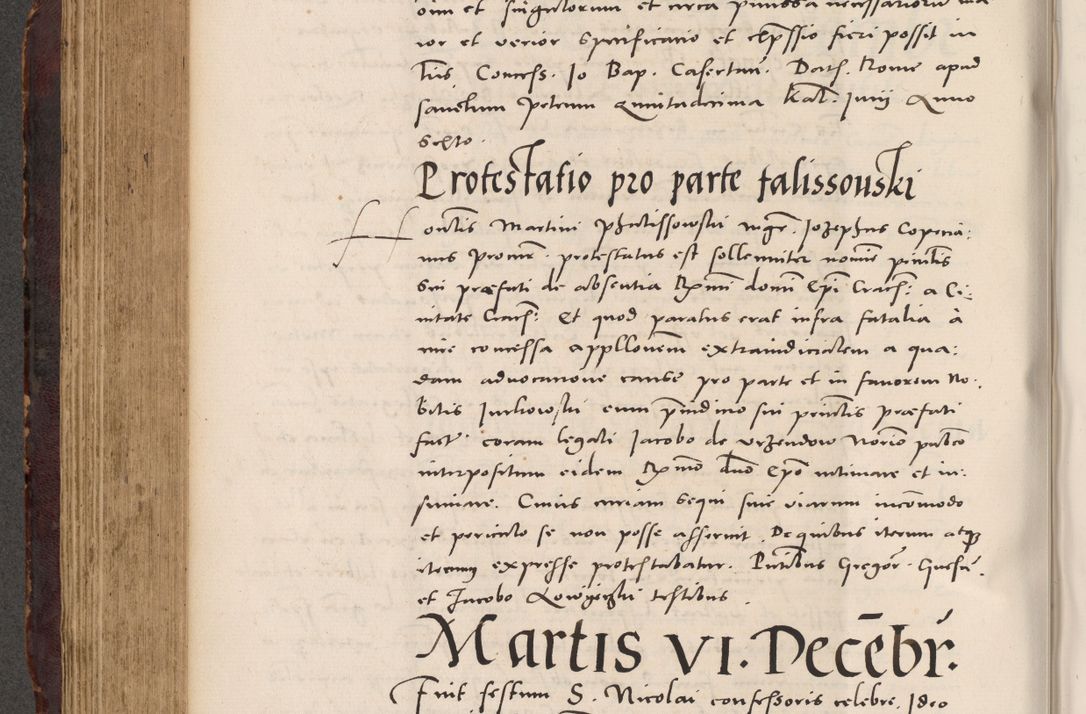 oim et singulorum et circa pmissa necessariorum ma
ior et verior specificatio et expssio fieri possit in
lris Concess. Jo Bap. Casertan. Dat. Rome apud
sanctum Petrum Quintadecima Kal. Junij Anno
sexto.
Protestatio pro parte talissouski
onilis Martini Phalissowski mgr. Josephus Coperia:
nus Procur. protestatus est sollemniter nomine principlis
sui præfati de absentia Rxmi domi Epi Crac: a Ci:
uitate Crac: Et quod paratus erat infra fatalia à
iure concessa appllonem extraiudicialem a qua:
dam aduocatione cause pro parte et in fauorem No:
bilis Jurkowski eum pudicio sui princlis præfati
fact: coram legali Jacobo de Vrzendow Norio publco
interpositum eidem Rxmo dno Epo intimare et in:
sinuare. Cuius curiam sequi siue viarum incommodo
et periculo se non posse asseruit. De quibus iterum atqz
iterum expresse protestabatur. Pntibus Gregor.
et Jacobo testibus.
Martis VI. Decebr.
Fuit festum S. Nicolai confessoris celebre. Ideo